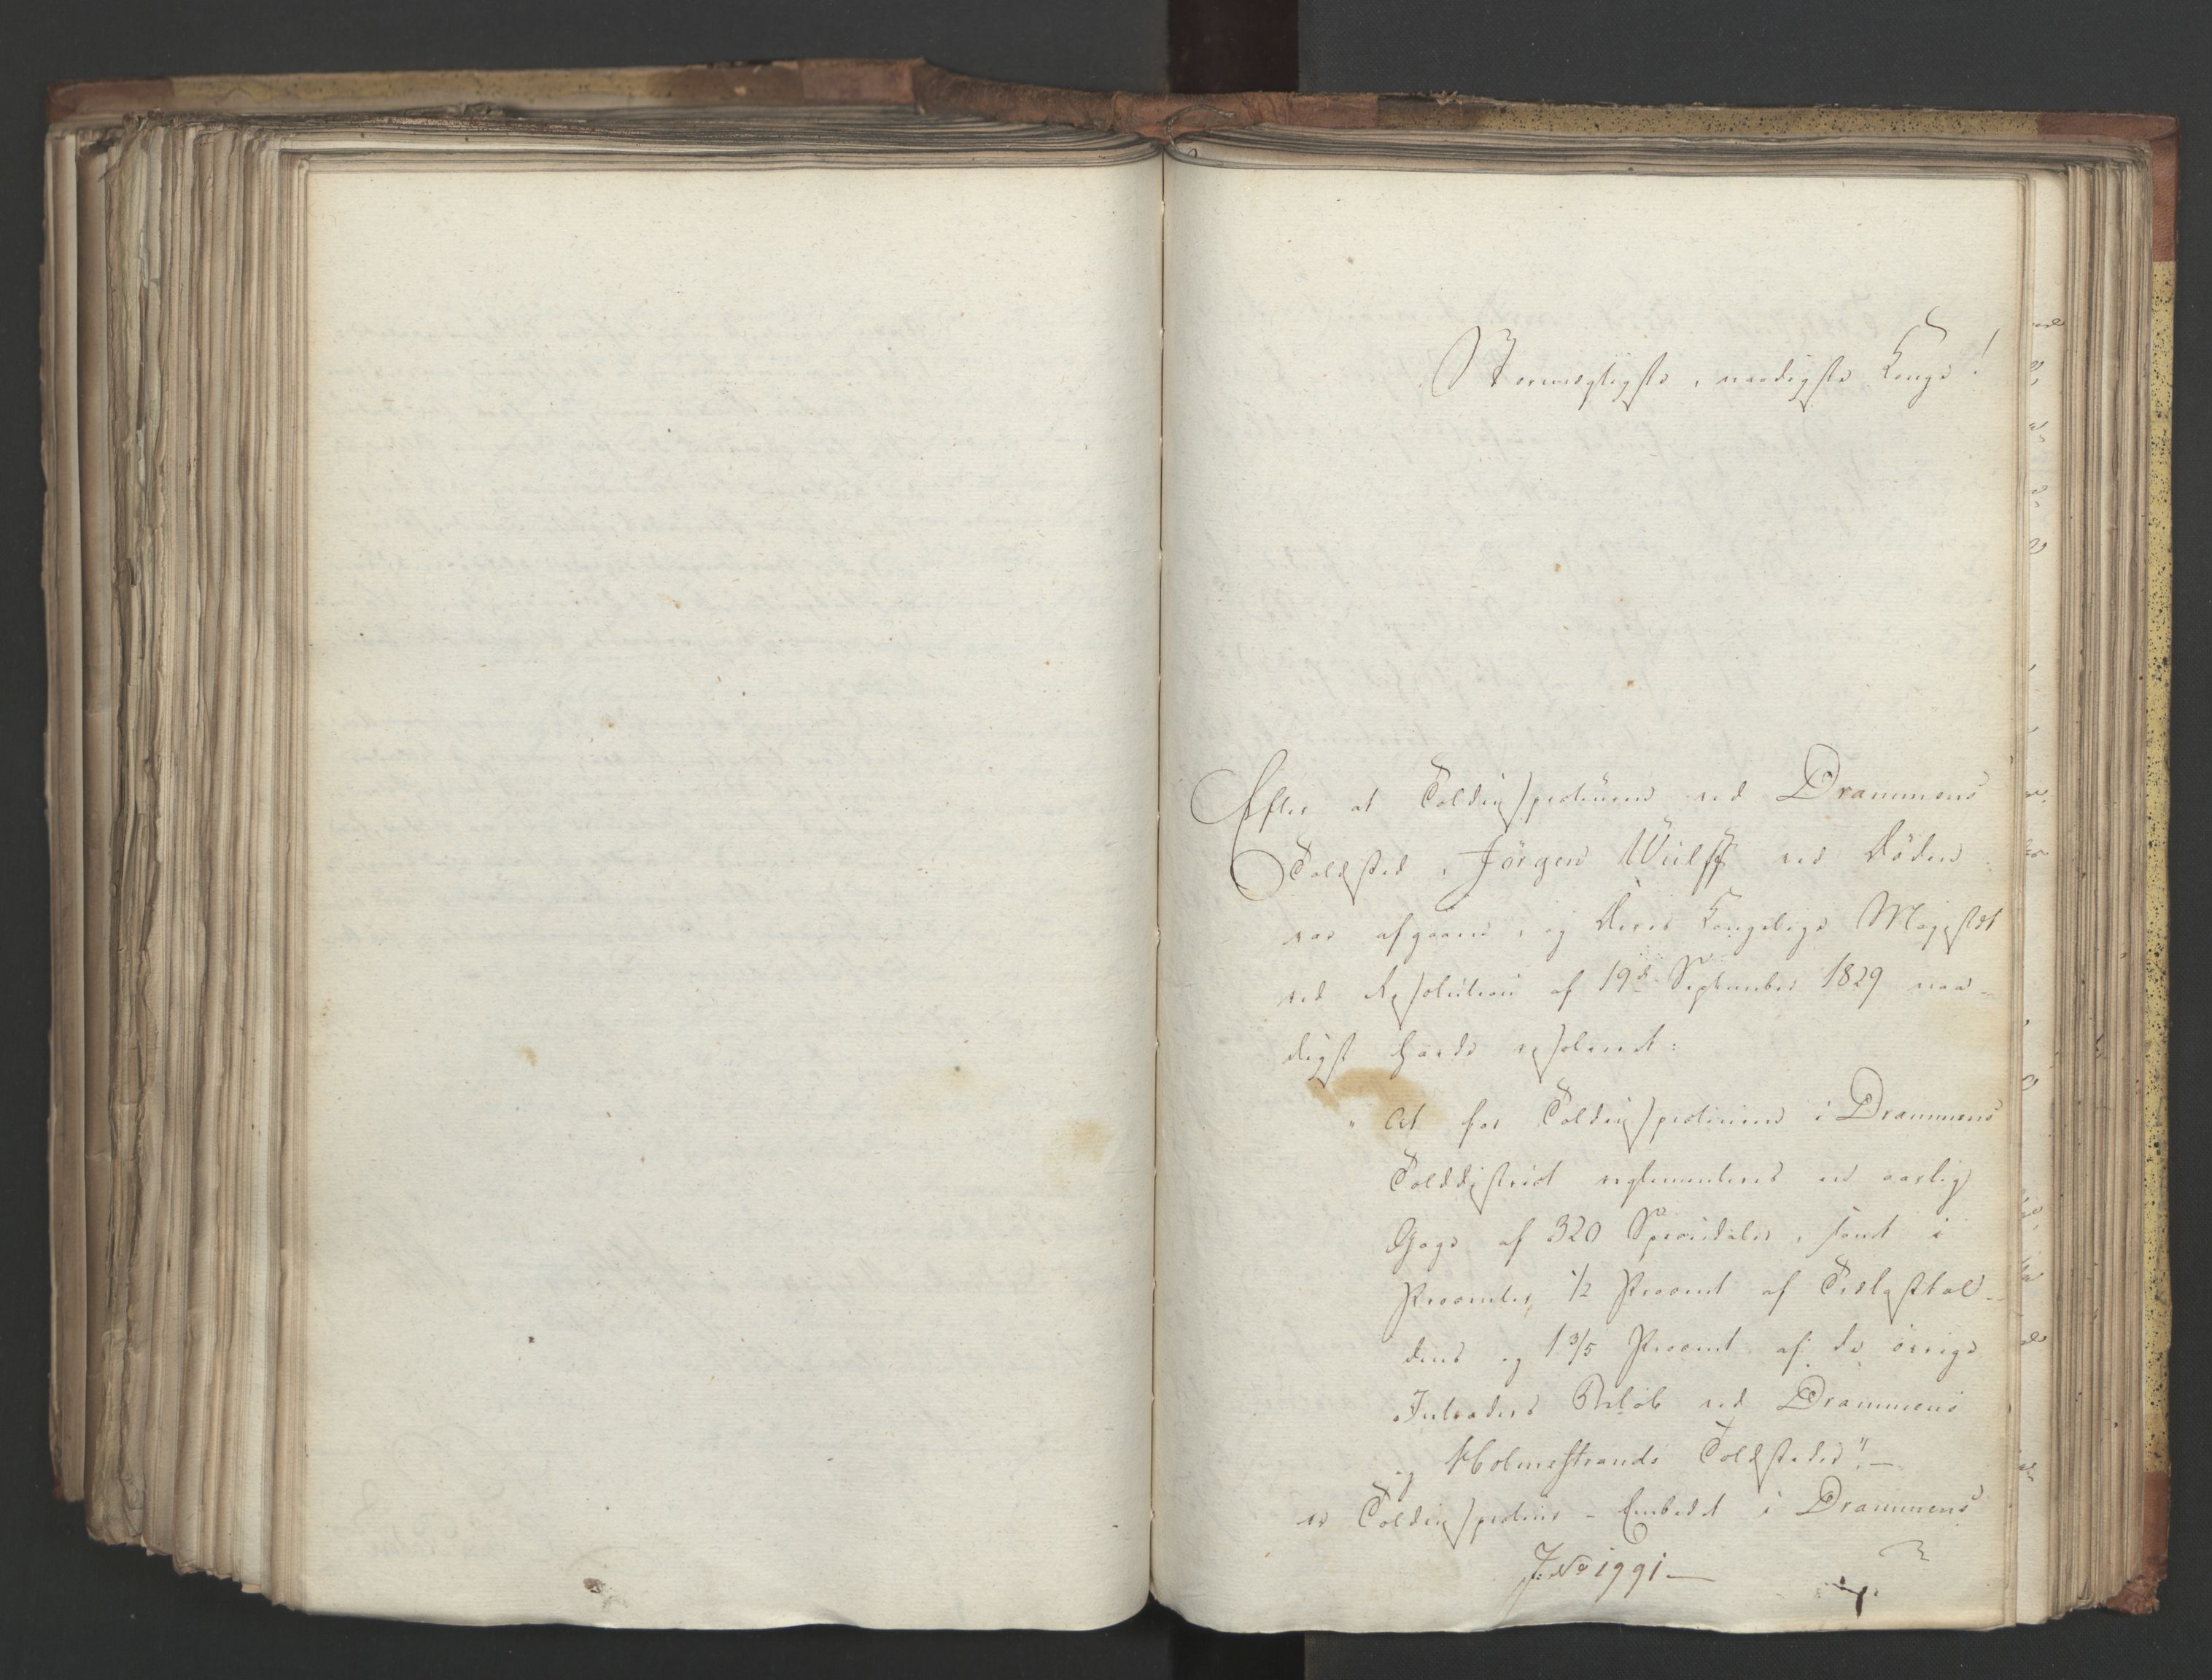 Stormægtigste, naadigste Konge!
Efter at Toldinspecteuren ved Drammens
Toldsted, Jörgen Wulff ved Döden
var afgaaen, og Deres Kongelige Majestæt
ved Resolution af 19de September 1829 naa-
digst havde resolveret:
"At for Toldinspecteuren i Drammens
Tolddistrict reglementeres en aarlig
Gage af 320 Speciedaler, samt i
Procenter, 1/2 Procent af Trælasttol-
dens og 1 3/5 Procent af de övrige
Intraders Belöb ved Drammens
og Holmestrands Toldsteder". —
er Toldinspecteur-Embedet i Drammens
J: No 1991 —